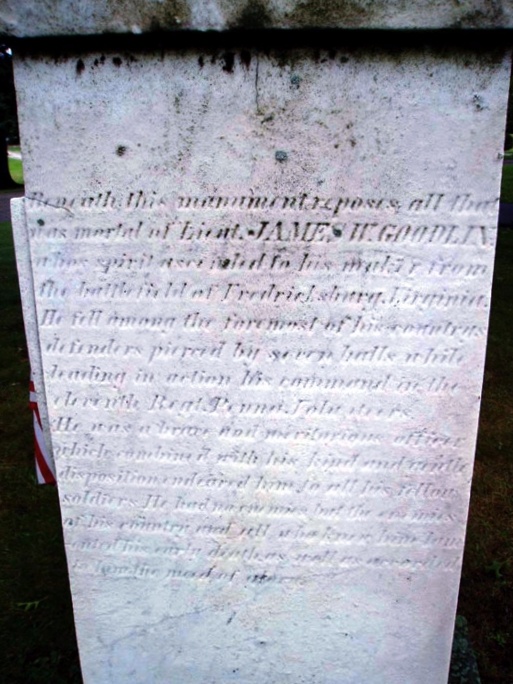 Beneath this manument reposes all that
was mortal of Lieut. JAMES W. GOODLIN,
whos spirit ascended to his maker from
the battlefield of Fredricksburg, Virginia.
He fell among the foremost of his countrys
defenders pierced by seven balls while
leading in action his command in the
eleventh Regt. Penna. Volunteers.
He was a brave and meritorious officer
which combined with his kind and gentle
disposition endeared him to all his fellow
soldiers. He had no enemies but the enemies
of his country and all who knew him
his early death as well as accorded
to him the meed of